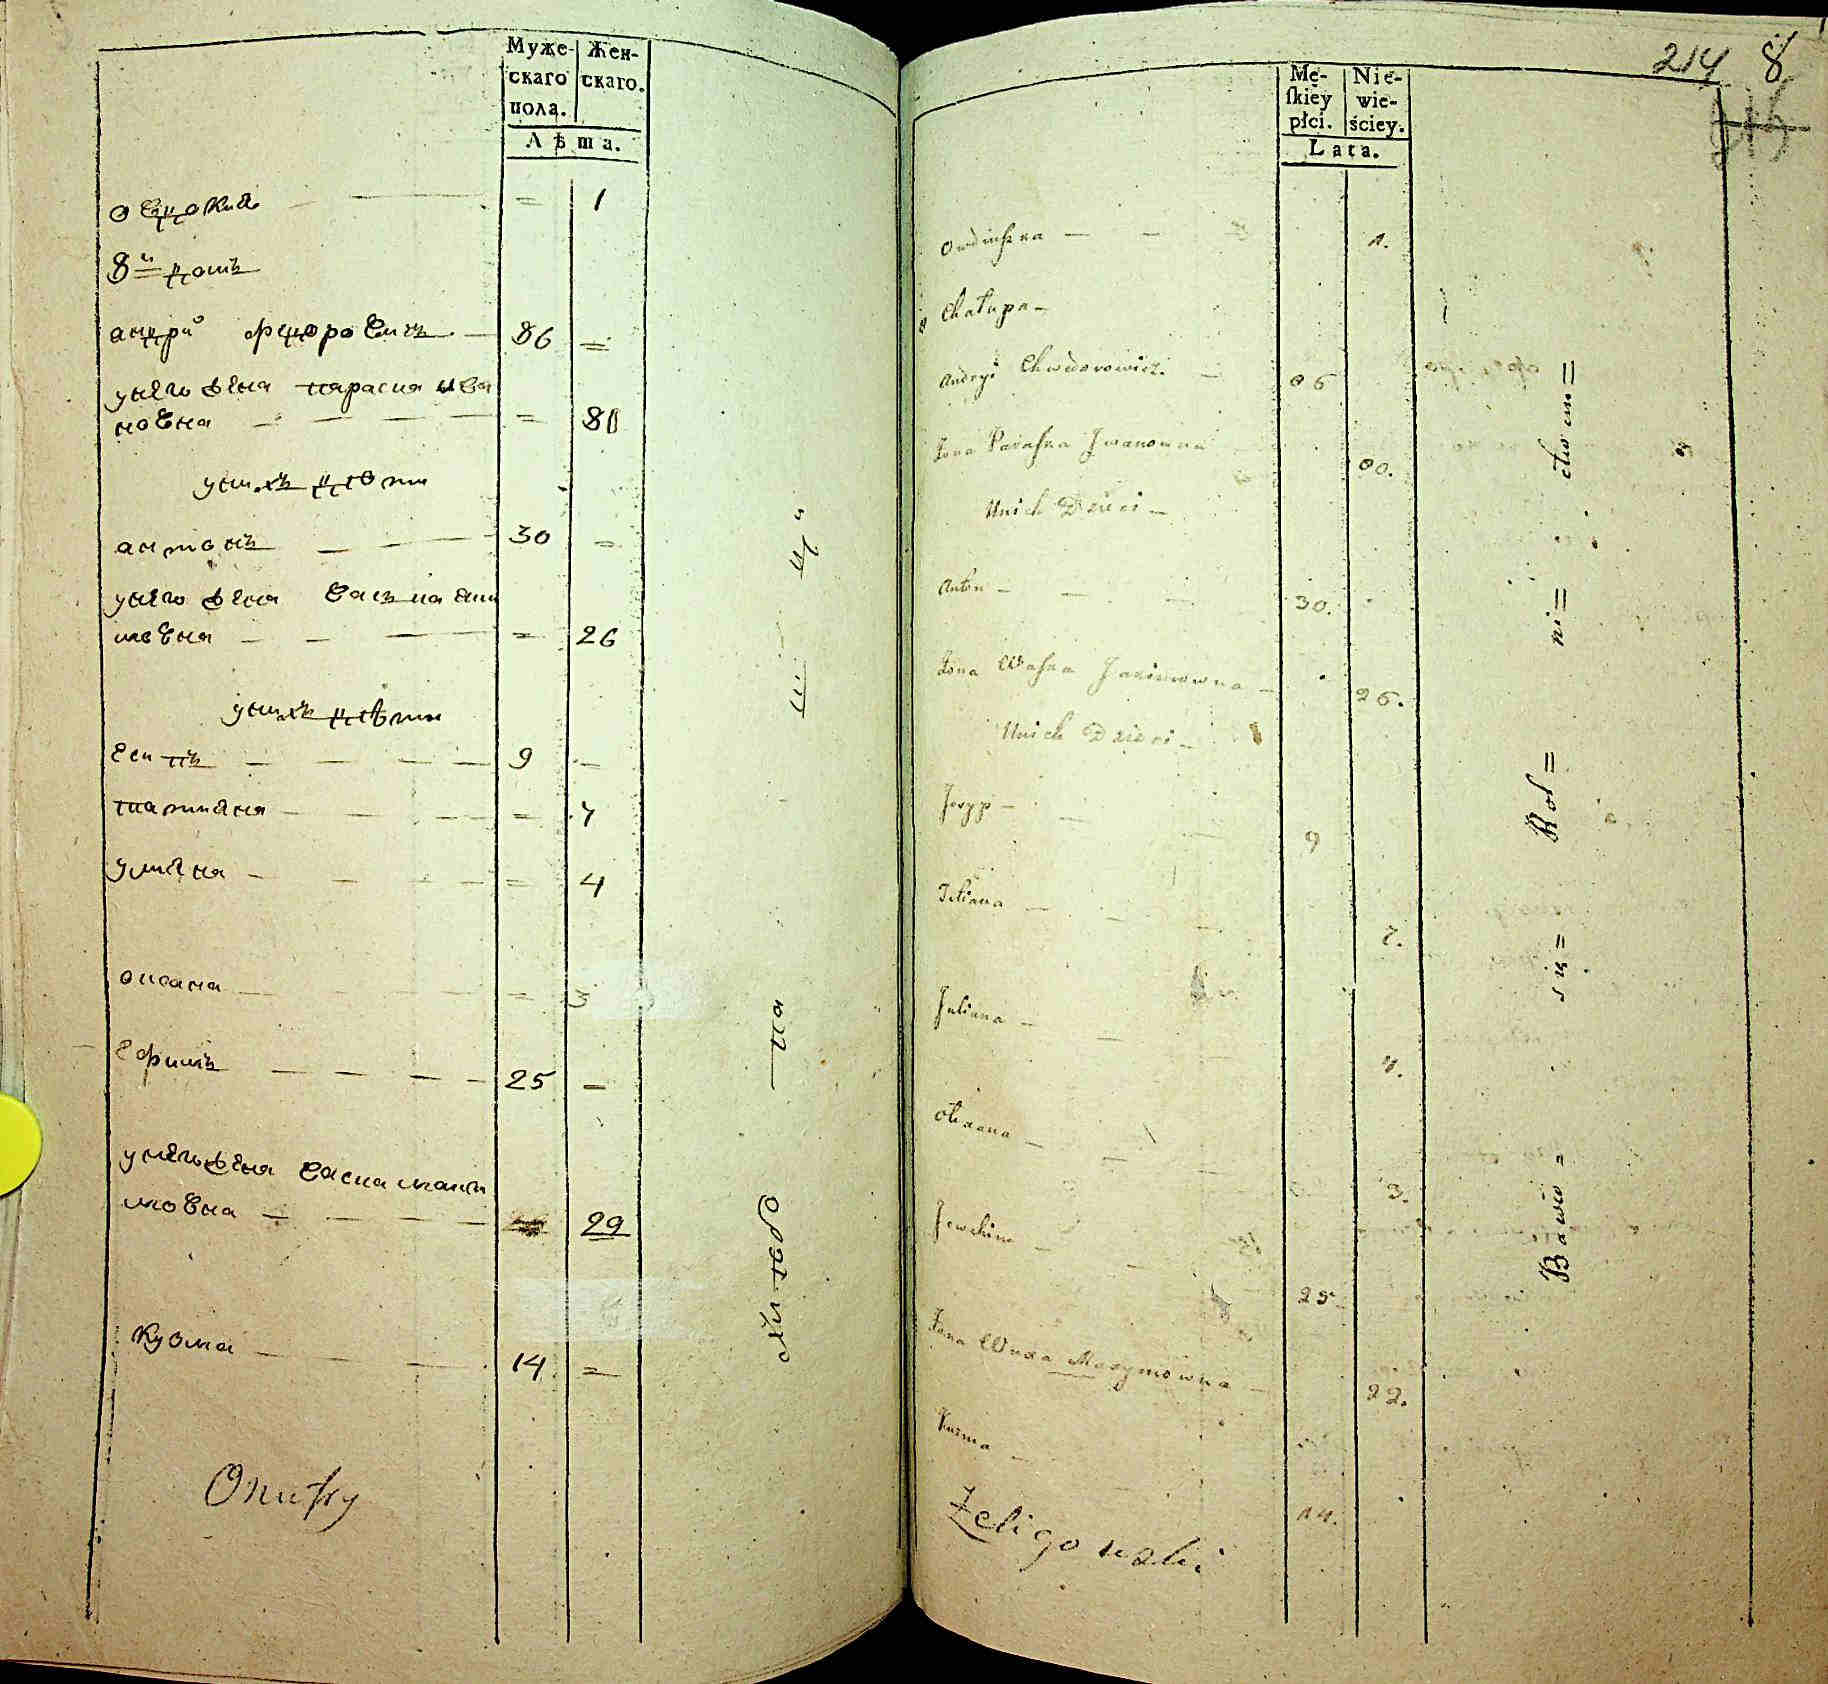 Муже-
скаго
пола.
Жен-
скаго.
Лѣта.
овдокия — — = 1
8й домъ
андрий федоровичъ — 86 =
унего жена параска ива
новна — — — = 80
унихъ дѣти
антонъ — — — 30 =
унего жена васька яки
мовна — — — = 26
унихъ дѣти
есипъ — — — 9 —
татияна — — — = 7
улияна — — — = 4
оксана — — — = 3
ефимъ — — — 25 —
унего жена васка макси
мовна — — — 29
кузма — — — 14 =
Onufry
214 8
Mę-
skiey
płci.
Nie-
wie-
ściey.
Lata.
Owdiuszka — — 1.
8 Chałupa —
Andryi Chwedorowicz. — 86
Żona Paraska Iwanowna 80.
Unich Dzieci —
Anton — — — 30.
Żona Waska Jakimowna — 26.
Unich Dzieci —
Jozyp — — — 9
Tetiana — — — 7.
Juliana — — 4.
Olexana — — — 3.
Jewchim — 25
Żona Waska Maxymowna — 22.
Kuzma — 14.
Żeligowski
Bawią =
się =
Rol =
ni =
ctwem =